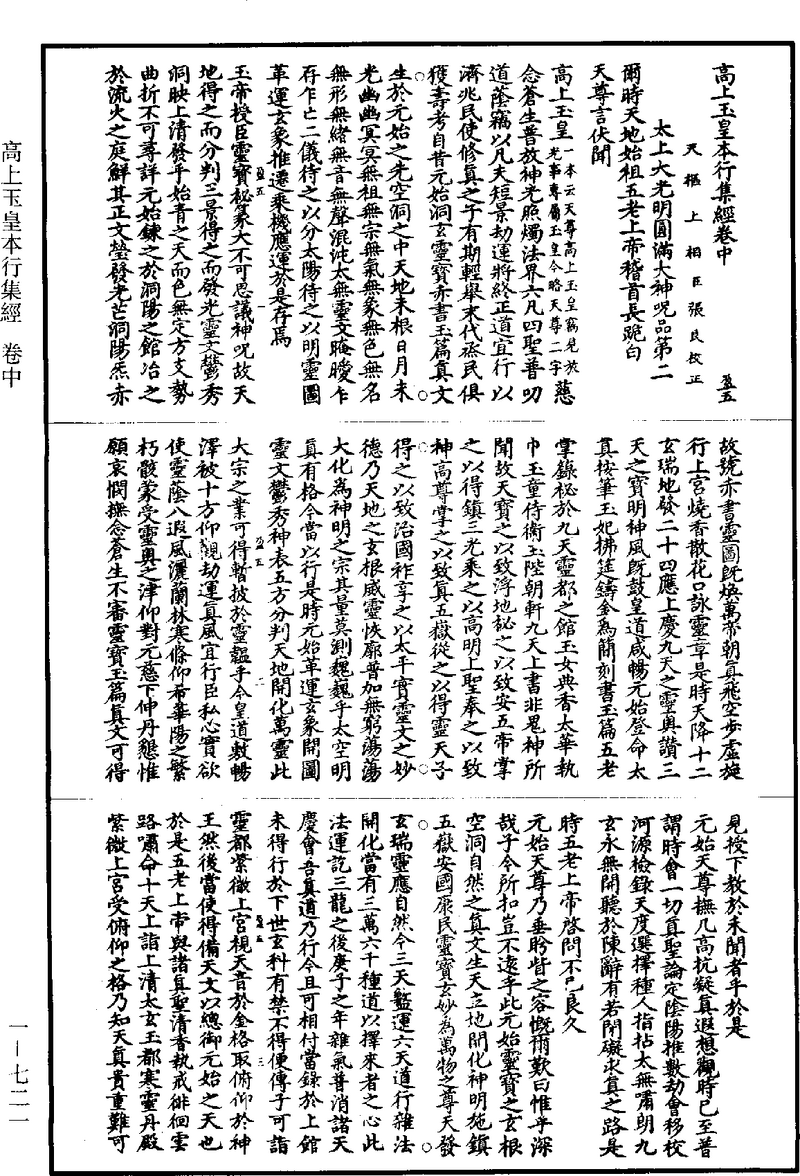 高上玉皇本行集經卷中
天樞上相臣張良校正
盈五
太上大光明圓滿大神呪品第二
爾時天地始祖五老上帝稽首長跪白
天尊言伏聞
高上玉皇一本云天尊高上玉皇竊見放光事專屬玉皇今略天尊二字慈
念蒼生普放神光照燭法界六凡四聖普叨
道蔭竊以凡夫短景劫運將終正道宜行以
濟兆民使修真之子有期輕舉末代烝民俱
獲壽考自昔元始洞玄靈寶赤書玉篇真文
生於元始之先空洞之中天地未根日月未
光幽幽冥冥無祖無宗無氣無象無色無名
無形無緒無音無聲混沌太無靈文晻曖乍
存乍亡二儀待之以分太陽待之以明靈圖
革運玄象推遷乘機應運於是存焉
玉帝授臣靈寶秘篆大不可思議神呪故天
地得之而分判三景得之而發光靈文鬱秀
洞映上清發乎始青之天而色無定方文勢
曲折不可尋詳元始鍊之於洞陽之館冶之
於流火之庭鮮其正文瑩發光芒洞陽炁赤
故號赤書靈圖既煥萬帝朝真飛空步虛旋
行上宮燒香散花口詠靈章是時天降十二
玄瑞地發二十四應上慶九天之靈奧讚三
天之寶明神風既鼓皇道咸暢元始登命太
真按筆玉妃拂筵鑄金為簡刻書玉篇五老
掌錄秘於九天靈都之館玉女典香太華執
巾玉童侍衛玉陛朝軒九天上書非鬼神所
聞故天寶之以致浮地秘之以致安五帝掌
之以得鎮三光乘之以高明上聖奉之以致
神高尊掌之以致真五嶽從之以得靈天子
得之以致治國祚享之以太平實靈文之妙
德乃天地之玄根威靈恢廓普加無窮蕩蕩
大化為神明之宗其量莫測巍巍乎太空明
真有格今當以行是時元始革運玄象開圖
靈文鬱秀神表五方分判天地開化萬靈此
大宗之業可得暫披於靈韞乎今皇道敷暢
澤被十方仰觀劫運真風宜行臣私心實欲
使靈蔭八遐風灑蘭林寒條仰希華陽之繁
朽骸蒙受靈奧之津仰對元慈下仲丹懇惟
願哀憫撫念蒼生不審靈寶玉篇真文可得
見授下教於未聞者乎於是
元始天尊撫几高抗凝真遐想觀時已至普
謂時會一切真聖論定陰陽推數劫會移校
河源檢錄天度選擇種人指拈太無嘯朗九
玄永無開聽於陳辭有若閉礙求真之路是
時五老上帝啓問不已良久
元始天尊乃垂眄眥之容慨爾歎曰惟乎深
哉子今所扣豈不遠乎此元始靈寶之玄根
空洞自然之真文生天立地開化神明施鎮
五嶽安國康民靈寶玄妙為萬物之尊天發
玄瑞靈應自然今三天藍運六天道行雜法
開化當有三萬六千種道以擇來者之心此
法運訖三龍之後庚子之年雜氣普消諸天
慶會吾真道乃行今且可相付當錄於上館
未得行於下世玄科有禁不得便傳子可詣
靈都紫微上宮視天音於金格取俯仰於神
王然後當使得備天文以總御元始之天也
於是五老上帝與諸真聖清香執戒徘徊雲
路嘯命十天上詣上清太玄玉都寒靈丹殿
紫微上宮受俯仰之格乃知天真貴重難可
高上玉皇本行集經 卷中
一—七二一